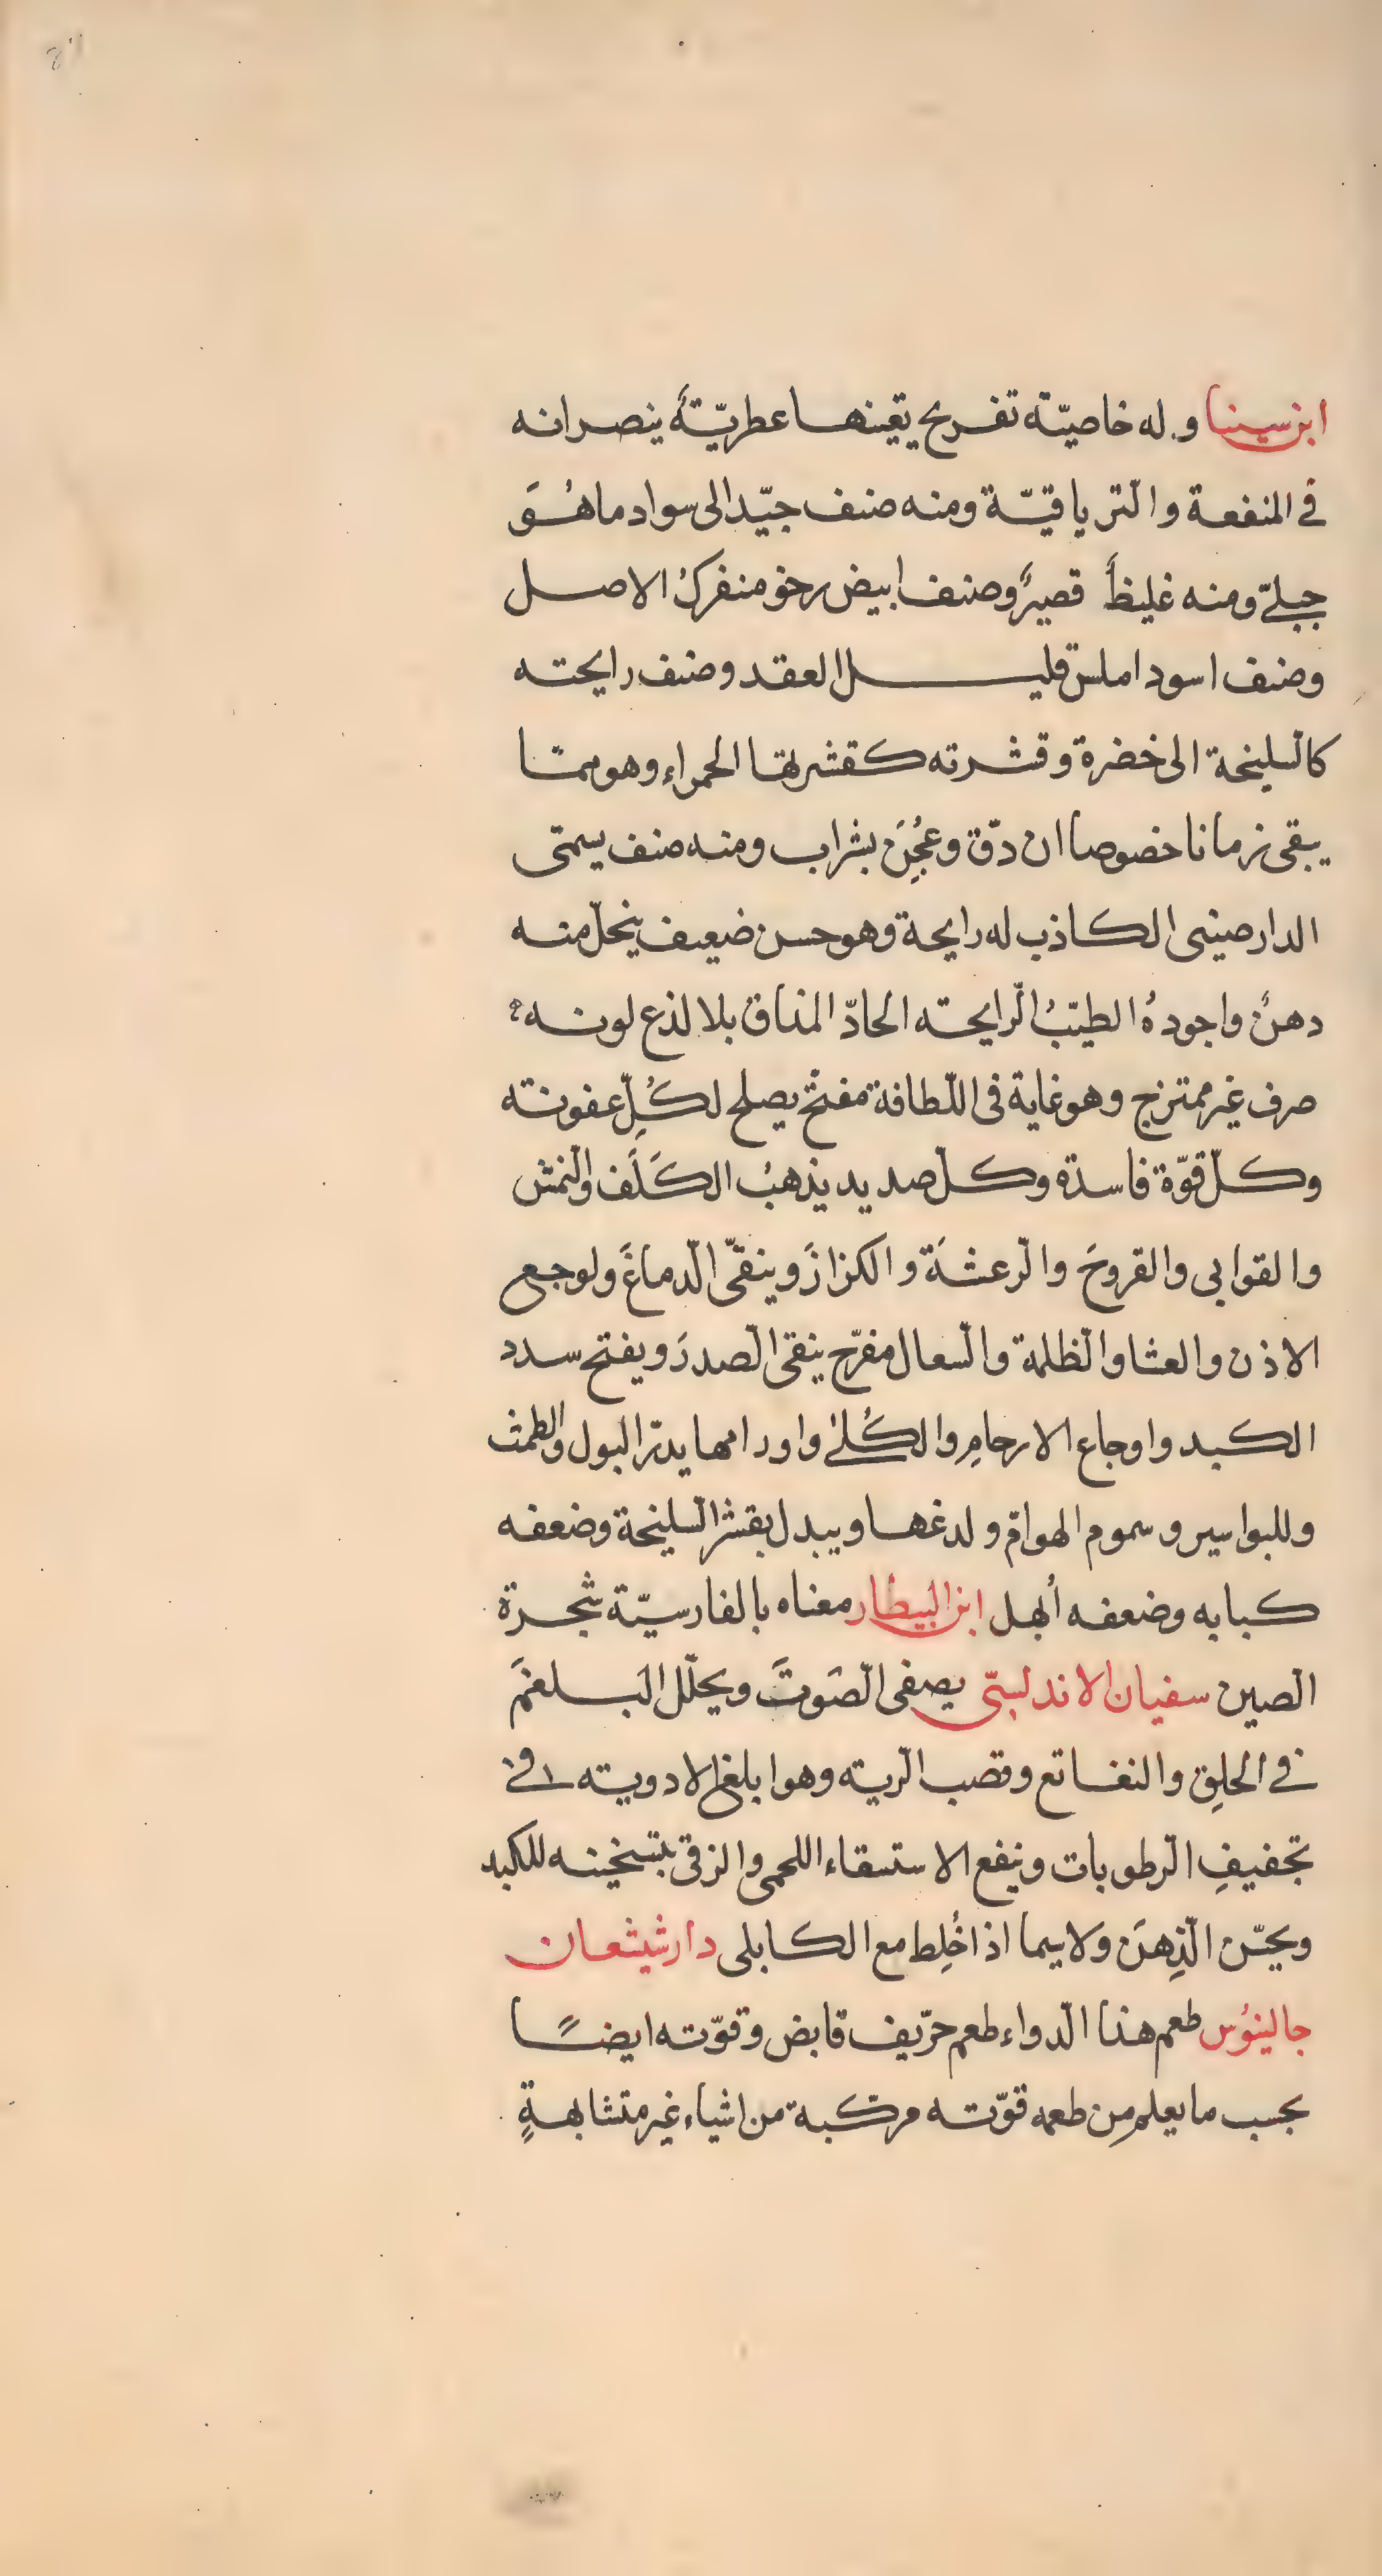 ابن سينا وله خاصيّة تفريح يعينها عطريّةً ينصرانه
في المنفعة والترياقيّة ومنه صنف جيّد الى سواد ما هُوَ
جبلىّ ومنه غليظً قصيرٌ وصنف ابيض رخو منفركُ الاصل
وصنف اسود املس قليل العقد وصنف رايحته
كالسليخة الى خضرة وقشرته كقشرتها الحمراء وهو ممّا
يبقى زمانا خصوصا ان دّق وعُجِنَ بشراب ومنه صنف يسمّى
الدارصينى الكاذب له رايحة وهو حسن ضعيف ينحلّ منه
دهنٌ واجودهُ الطيّبُ الرّايحته الحادّ المذاق بلا لذع لونه
صرف غير ممتزج وهو غاية فى اللّطافة مفتّحٌ يصلح لكُلِّ عفونته
وكلّ قوّة فاسدة وكلّ صديد يذهبُ الكَلَف والنّمش
والقوابى والقروحَ والرّعشَة والكزازَ وينقّى الّدماغَ ولوجع
الاذن والعشا والّظلمة والّسعال مفرّح ينقى الّصدرَ ويفتح سدد
الكبد واوجاع الارحامِ والكُلىٰ واورامها يدرّ البول والطمث
وللبواسير وسموم الهوامّ ولدغها ويبدل بقشر الّسليخة وضعفه
كبابه وضعفه اُبهل ابن البيطار معناه بالفارسيّة شجرة
الّصين سفيان الاندلسىّ يصفى الّصَوتَ ويحلّل البَلغَمَ
في الحلِق والنغانع وقصب الّريته وهو ابلغ الادويته فى
تجفيفِ الّرطوبات وينفع الاستسقاء اللحمى والزقى بتسخينه للكبد
ويحسّن الّذِهنَ ولا سيما اذا خُلِط مع الكابلى دارشيشعان
جالينوُس طعم هذا الّدواء طعم حرّيف قابض وقوّته ايضًا
بحسب ما يعلم مِن طعمه قوّته مركّبة من اشياء غير متشابهةٍ